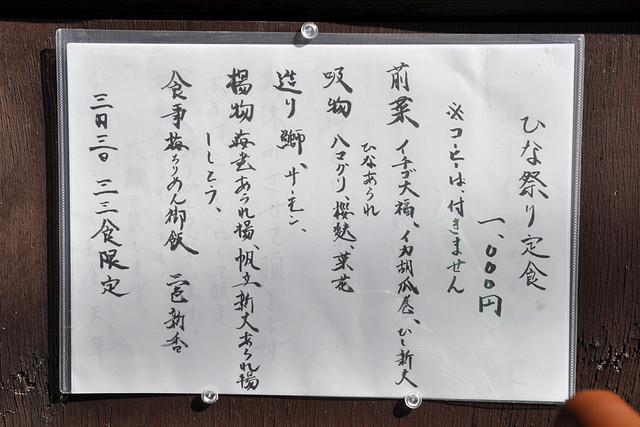 ひな祭り定食
一、〇〇〇円
※コーヒーは、付きません
前菜 イチゴ大福、イカ胡瓜巻、ひし新丈
ひなあられ
吸物 ハマグリ、桜麩、菜花
造り 鰤、サーモン、
揚物 海老あられ揚、帆立新丈あられ揚
ししとう、
食事 梅ちりめん御飯 二色新香
三月三日 三三食限定